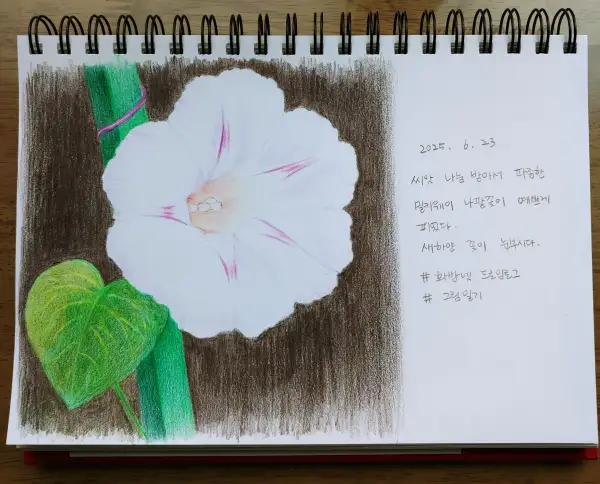 2025. 6. 23
씨앗 나눔 받아서 파종한
밀키웨이 나팔꽃이 예쁘게
피었다.
새하얀 꽃이 눈부시다.
# 드로잉로그
# 그림일기